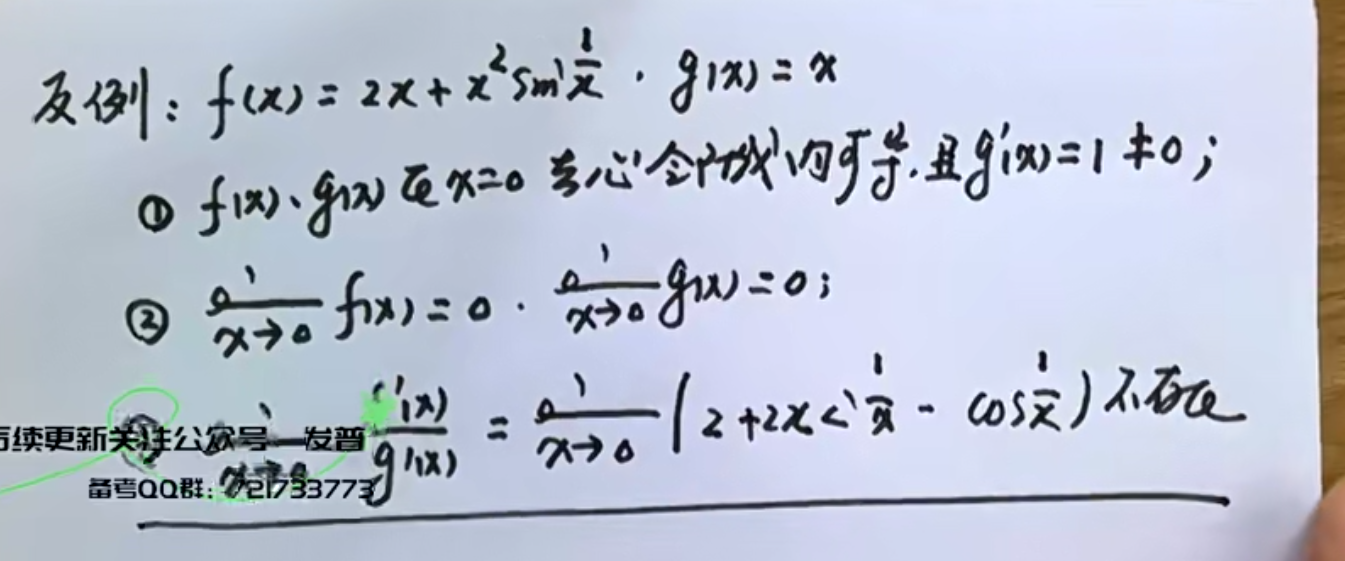 反例: f(x) = 2x + x² sin 1/x . g(x) = x
① f(x)、g(x) 在 x=0 去心邻域内可导. 且 g'(x) = 1 ≠ 0 ;
② lim x→0 f(x) = 0 . lim x→0 g(x) = 0 ;
③ lim x→0 f'(x)/g'(x) = lim x→0 (2 + 2x sin 1/x - cos 1/x) 不存在
后续更新关注公众号 发普
备考QQ群: 721733773